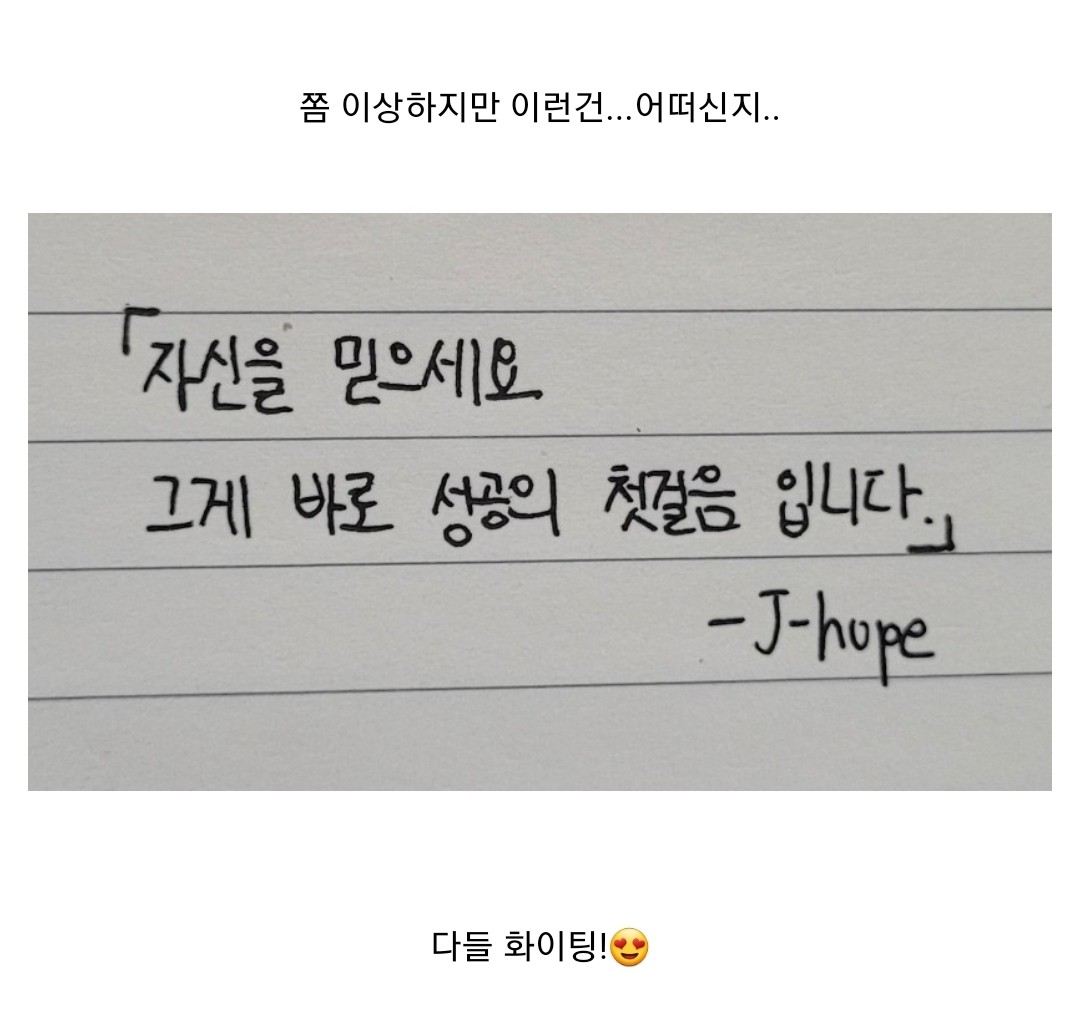 쫌 이상하지만 이런건...어떠신지..
「자신을 믿으세요
그게 바로 성공의 첫걸음 입니다.」
-J-hope
다들 화이팅!😍